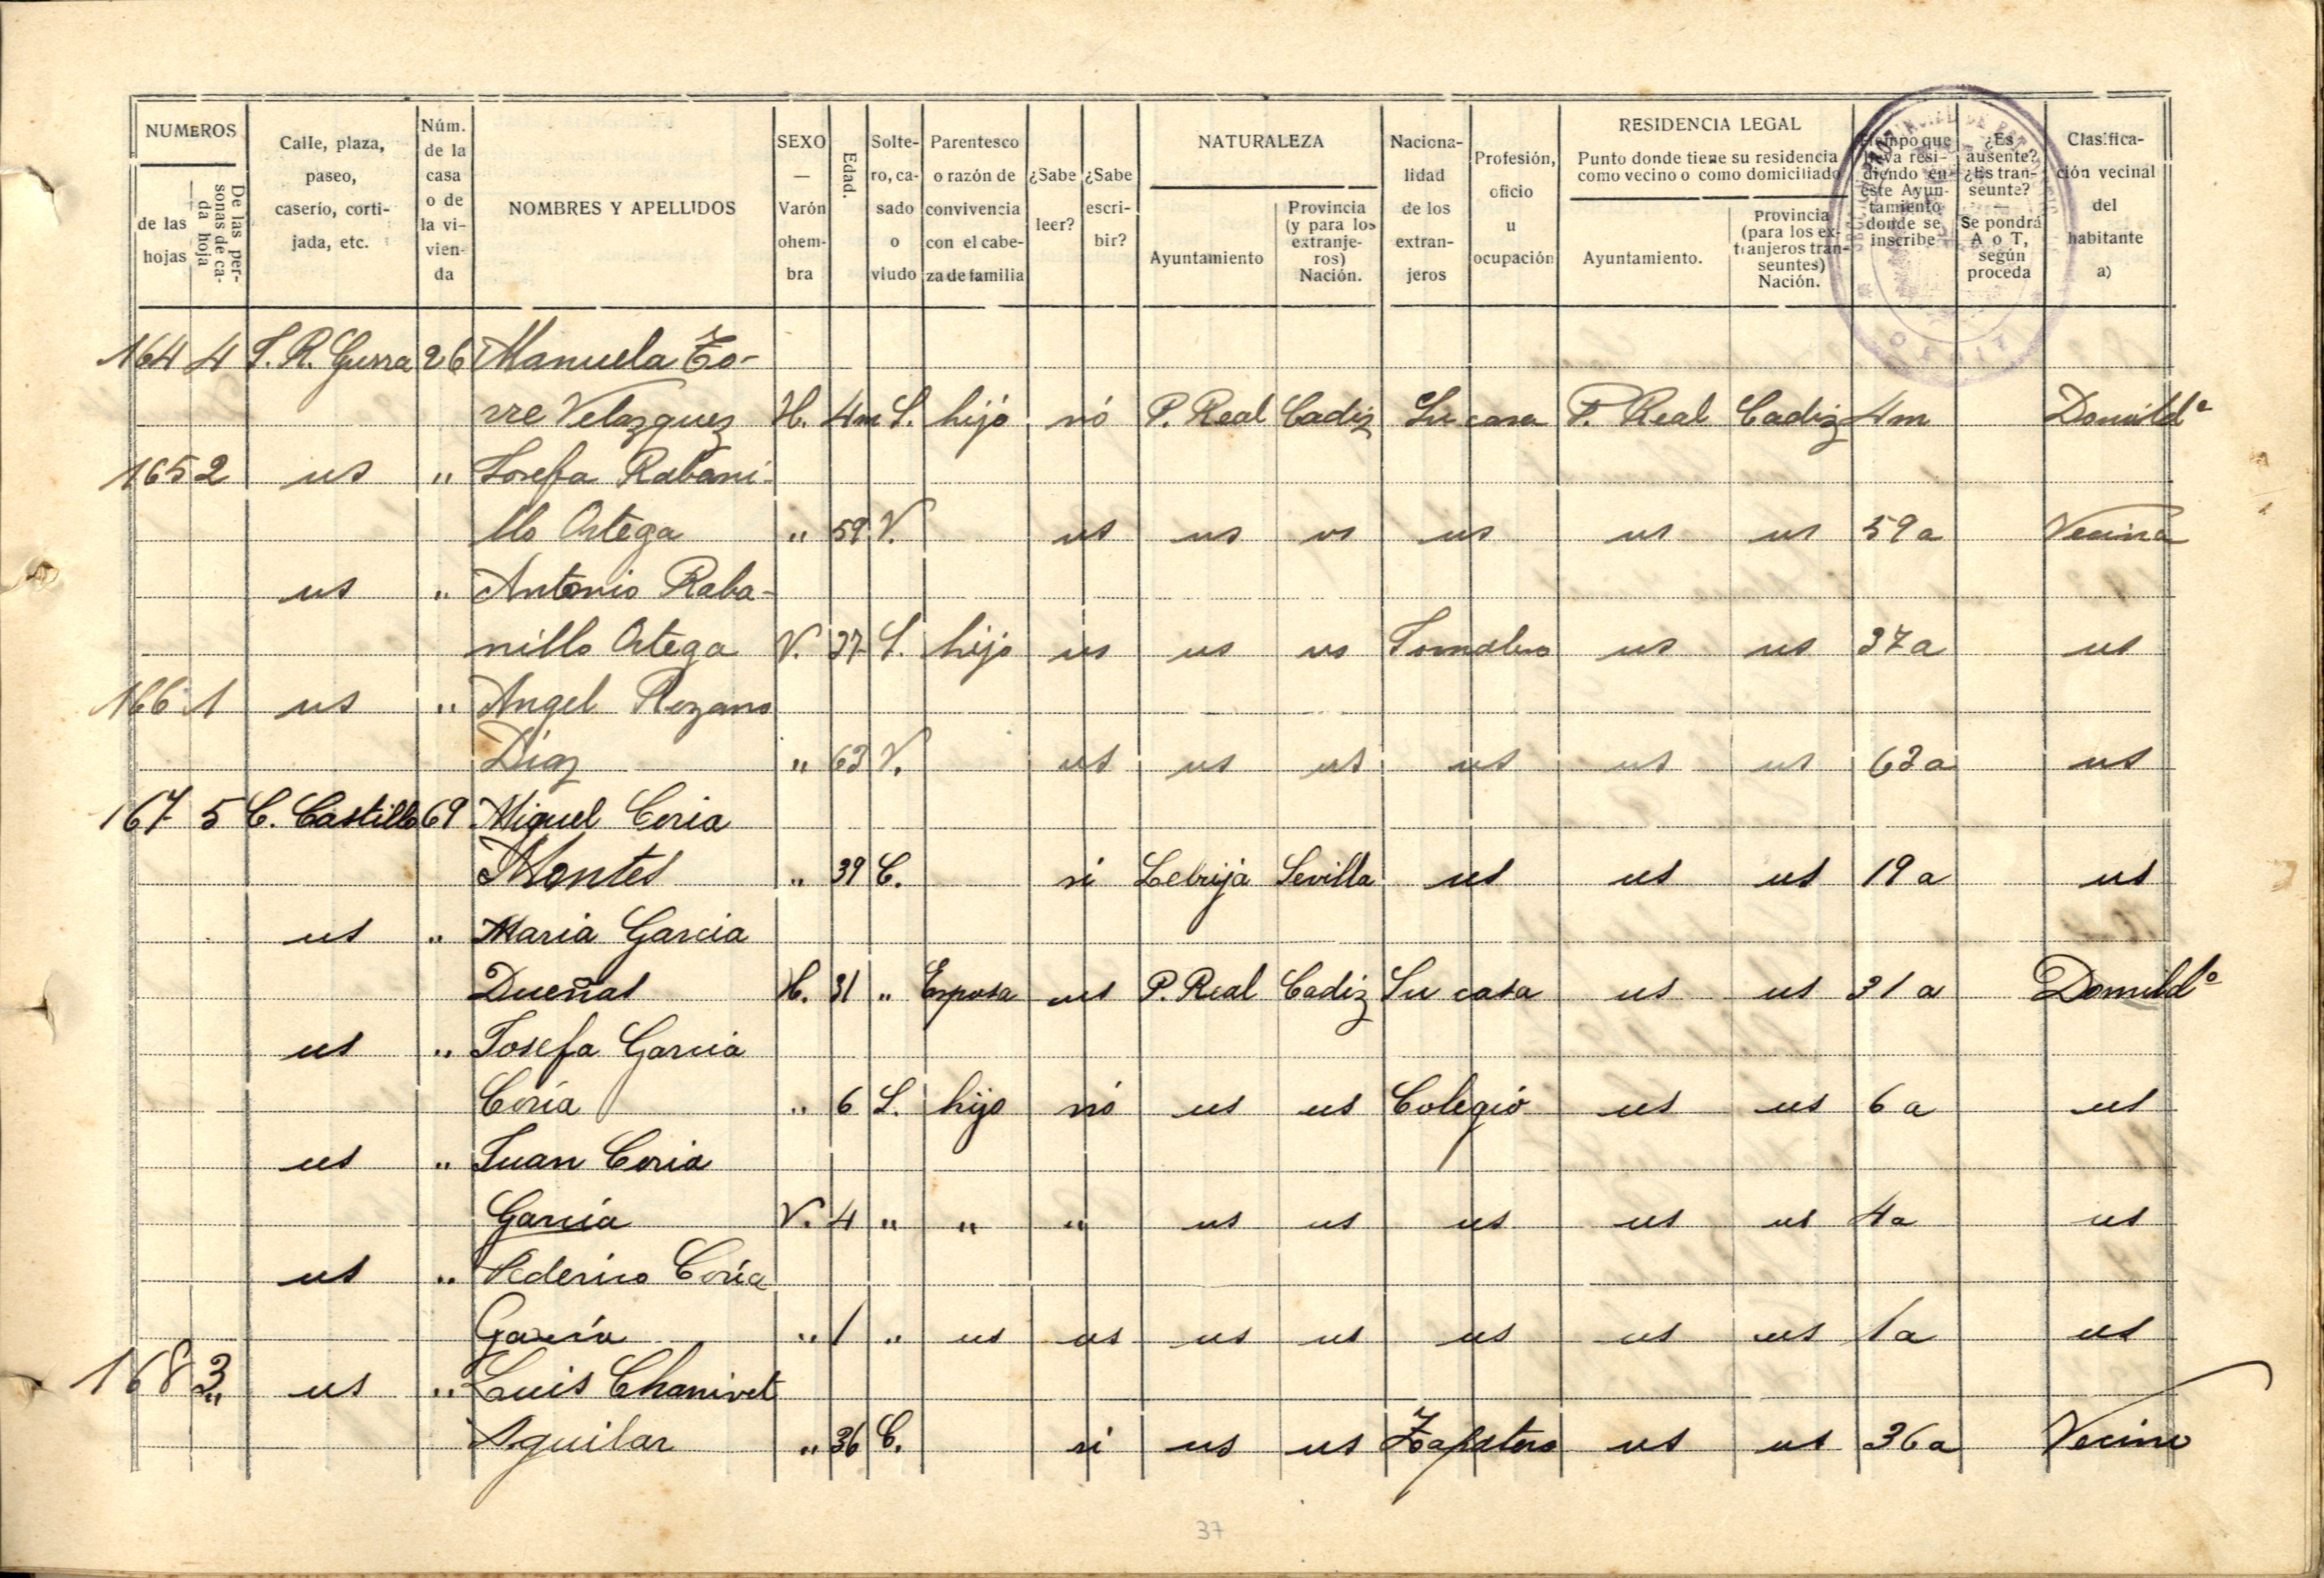 NUMEROS
de las hojas
De las personas de cada hoja
Calle, plaza, paseo, caserío, cortijada, etc.
Núm. de la casa o de la vivienda
NOMBRES Y APELLIDOS
SEXO — Varón ohembra
Edad.
Soltero, casado o viudo
Parentesco o razón de convivencia con el cabeza de familia
¿Sabe leer?
¿Sabe escribir?
NATURALEZA
Ayuntamiento
Provincia (y para los extranjeros) Nación.
Nacionalidad de los extranjeros
Profesión, oficio u ocupación
RESIDENCIA LEGAL
Punto donde tiene su residencia como vecino o como domiciliado
Ayuntamiento.
Provincia (para los extranjeros transeuntes) Nación.
Tiempo que lleva residiendo en este Ayuntamiento donde se inscribe
¿Es ausente? ¿Es transeunte? — Se pondrá A o T, según proceda
Clasificación vecinal del habitante a)
164 4 T. R. Gurra 26 Manuela To-
rre Velazquez H. 4m S. hijo nó P. Real Cadiz Su casa P. Real Cadiz 4m Domildº
165 2 us " Josefa Rabani-
llo Ortega " 59 V. us us us us us us 59 a Vecina
us " Antonio Raba-
nillo Ortega V. 37 S. hijo us us us us us 37 a us
166 1 us " Angel Rozano
Díaz " 63 V. us us us us us us 63 a us
167 5 C. Castillo 69 Miguel Coria
Montes " 39 C. si Lebrija Sevilla us us us 19 a us
us " Maria Garcia
Dueñas H. 31 " Esposa us P. Real Cadiz Su casa us us 31 a Domildº
us " Josefa Garcia
Coria " 6 S. hijo nó us us Colegio us us 6 a us
us " Juan Coria
García V. 4 " " " us us us us us 4a us
us " Federico Coría
García " 1 " us us us us us us us 1a us
168 3 us " Luis Chanivet
Aguilar " 36 C. si us us Zapatero us us 36 a Vecino
37